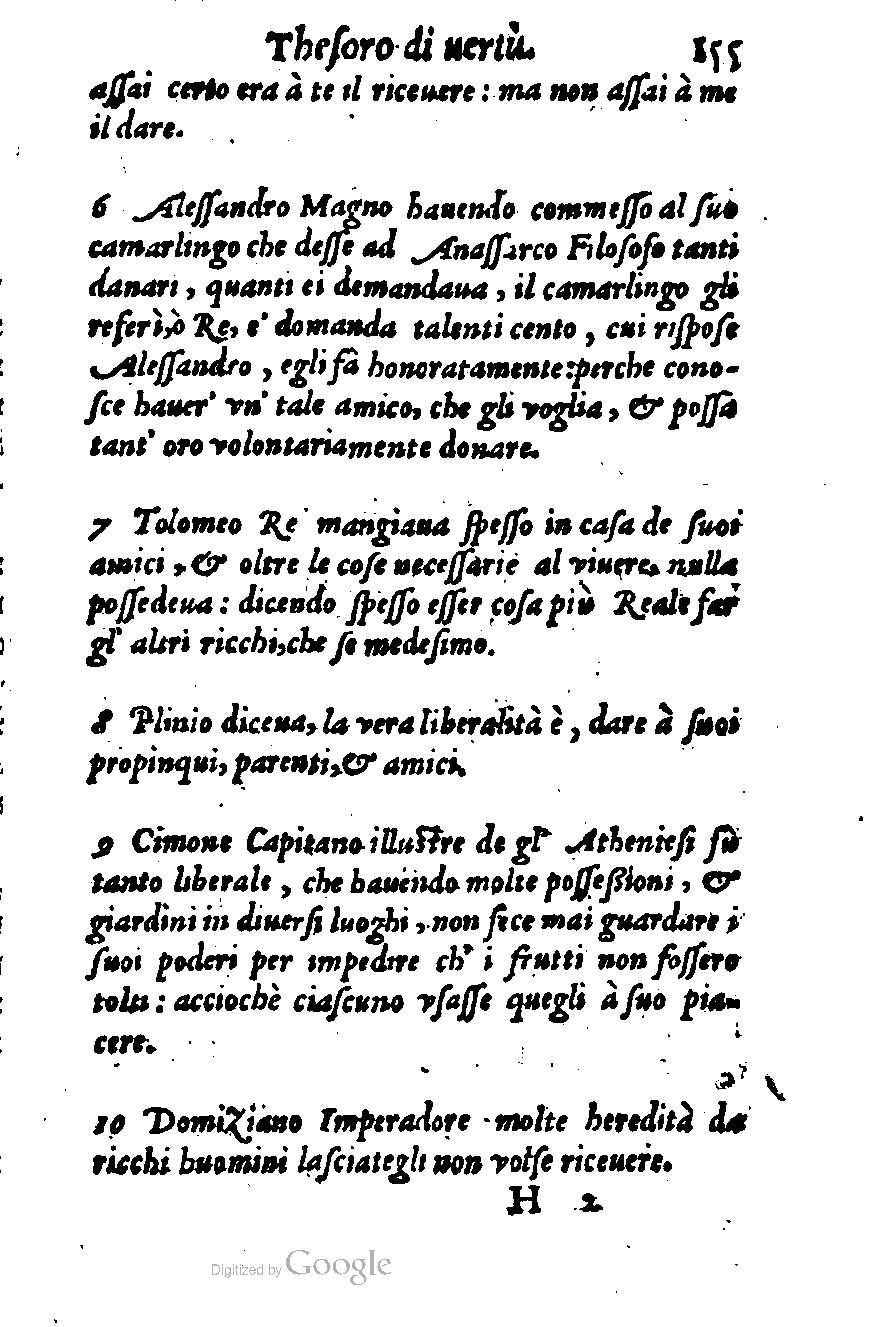 Theſoro di uertù. 155
aſſai certo era à te il riceuere : ma non aſſai à me
il dare.
6 Aleſſandro Magno hauendo commeſſo al ſuo
camarlingo che deſſe ad Anaſſarco Filoſofo tanti
danari , quanti ei demandaua , il camarlingo gli
referì,ò Re, e' domanda talenti cento , cui riſpoſe
Aleſſandro , egli fà honoratamente:perche cono-
ſce hauer' vn' tale amico, che gli voglia , & poſſa
tant' oro volontariamente donare.
7 Tolomeo Re mangiaua ſpeſſo in caſa de ſuoi
amici , & oltre le coſe neceſſarie al viuere. nulla
poſſedeua : dicendo ſpeſſo eſſer coſa più Reale far
gl' altri ricchi,che ſe medeſimo.
8 Plinio diceua, la vera liberalità è , dare à ſuoi
propinqui, parenti,& amici.
9 Cimone Capitano illuſtre de gl' Athenieſi fù
tanto liberale , che hauendo molte poſſeſſioni , &
giardini in diuerſi luoghi , non fece mai guardare i
ſuoi poderi per impedire ch' i frutti non foſſero
tolti : acciochè ciaſcuno vſaſſe quegli à ſuo pia-
cere.
10 Domiziano Imperadore molte heredità da
ricchi huomini laſciategli non volſe riceuere.
H 2
Digitized by Google